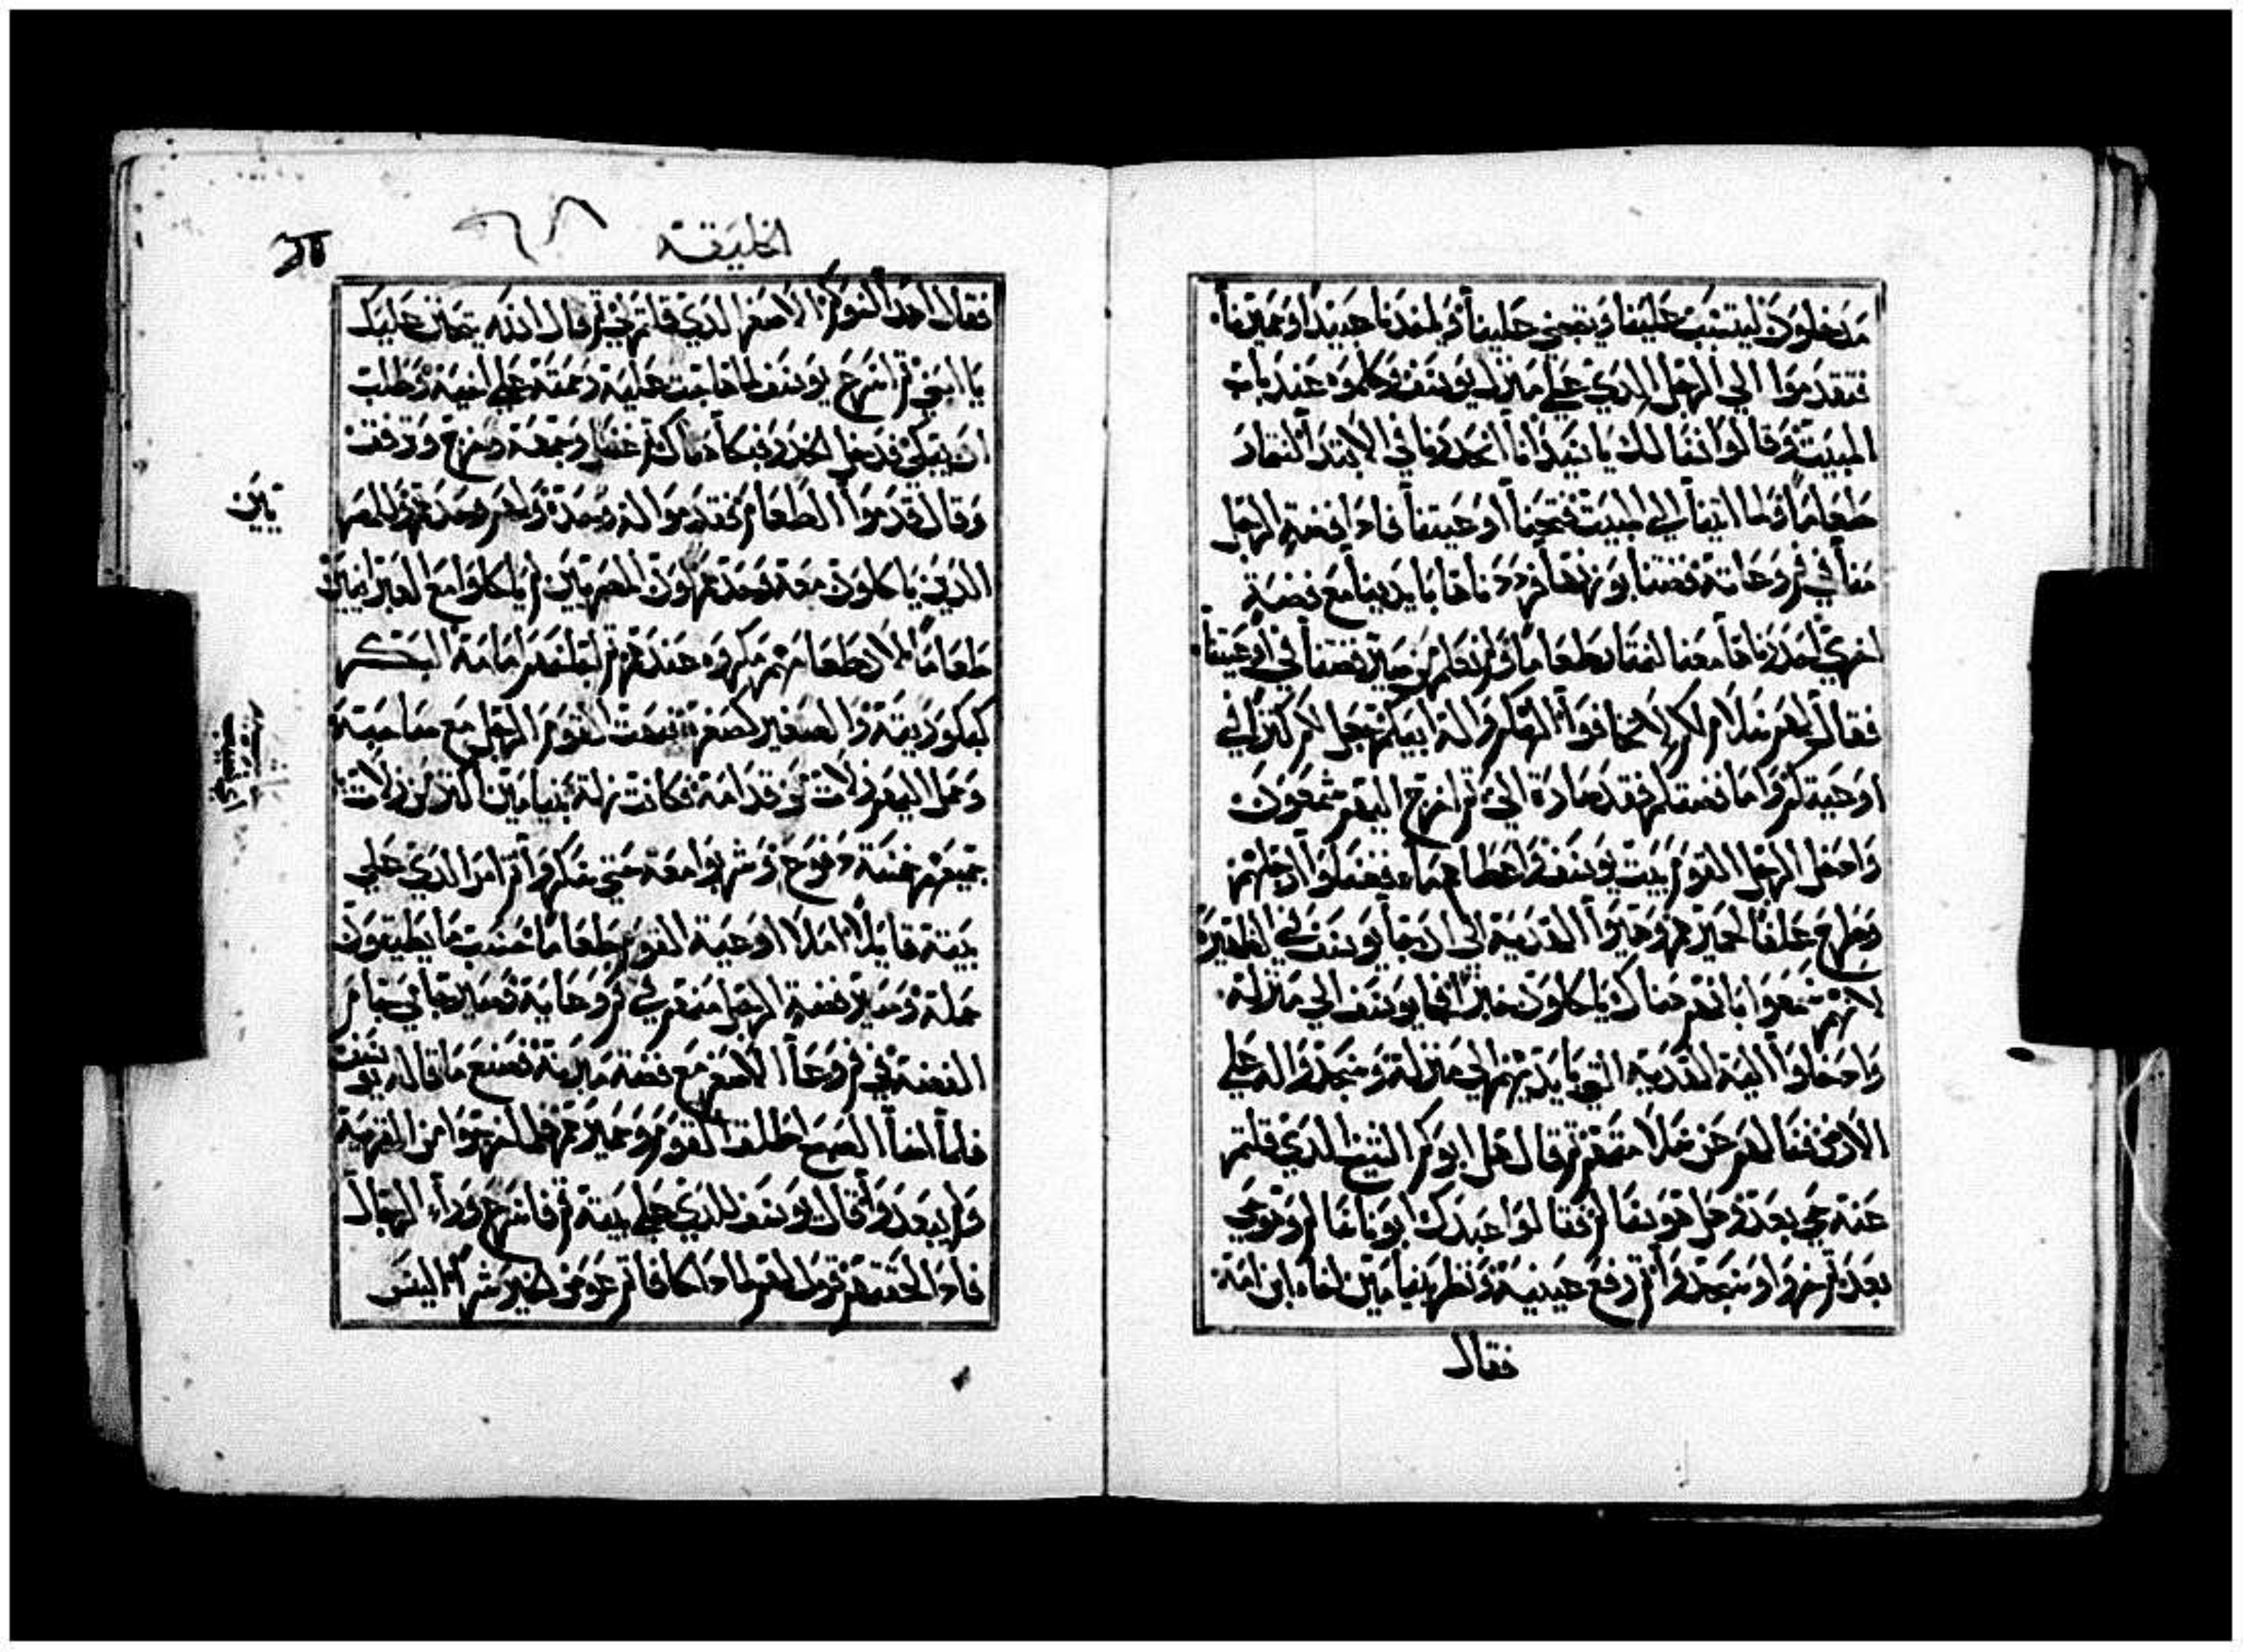 مدخلون ليتسبب علينا ويتجني علينا وياخدنا عبيدا وحميرنا
فتقدموا الي الرجل الدي علي منزل يوسف وكلموه عند باب
البيت وقالوا نسالك يا سيد انا انحدرنا في الابتدا لنمتار
طعاما فلما اتينا الي المبيت فتحنا اوعيتنا فادا فضة الرجل
منا في فم وعايه فضتنا بوزنها فرددناها بايدينا مع فضة
اخري احدرناها معنا لنمتار طعاما ولم نعلم من صير فضتنا في اوعيتنا
فقال لهم سلام لكم لا تخافوا الهكم واله ابيكم جعل لكم كنزا في
اوعيتكم واما فضتكم فقد صارة الي ثم اخرج اليهم شمعون
وادخل الرجل القوم بيت يوسف واعطاهم ماء فغسلوا ارجلهم
وطرح علفا لحميرهم وهيوا الهدية الي ان يجا يوسف في الظهيرة
لانهم سمعوا بانهم هناك ياكلون خبزا فجا يوسف الي منزله
وادخلوا اليه الهدية التي بايديهم الي منزله وسجدوا له علي
الارض فسالهم عن سلامتهم ثم قال هل ابوكم الشيخ الدي قلتم
عنه حي بعد وهل هو سالم فقالوا عبدك ابونا سالم وهو حي
بعد ثم خروا وسجدوا ثم رفع عينيه ونظر بنيامين اخاه ابن امه
فقال
الخليقة
٦٨
فقال اهدا اخوكم الاصغر الدي قلتم لي ثم قال الله يتحنن عليك
يا ابني ثم اسرع يوسف لما هاجت عليه رحمته علي اخيه وطلب
ان يبكي فدخل الخدر وبكا هناك ثم غسل وجهه وخرج وترفق
وقال قدموا الطعام فقدموا له وحده ولهم وحدهم وللمصر
يين
الدين ياكلون معه وحدهم لان المصريين لم ياكلوا مع العبرانيين
طعاما لان طعامهم مكروه عندهم ثم اجلسهم امامه البكر
كبكوريته والصغير كصغره فبهت القوم الرجل مع صاحبه
وحمل اليهم زلات من قدامه فكانت زلة بنيامين اكثر من زلات
جميعهم خمسة دفوع وشربوا معه حتي سكروا ثم امر الدي علي
بيته قايلا املا اوعية القوم طعاما حسب ما يطيقون
حمله وصير فضة الرجل منهم في فم وعايه وصير جامي جام
الفضة في فم وعا الاصغر مع فضة ميرته فصنع ما قاله يوسف
فلما اضا الصبح اطلقا القوم وحميرهم فلما خرجوا من القرية
ولم يبعدوا قال يوسف للدي علي بيته قم فاسرع وراء الرجال
فادا لحقتهم قول لهم لمادا كافاتم عوض الخير شرا اليس